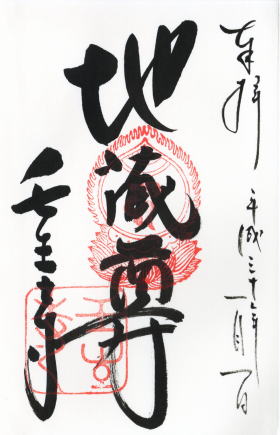 奉拝
平成三十一年一月一日
地蔵尊
壬生寺